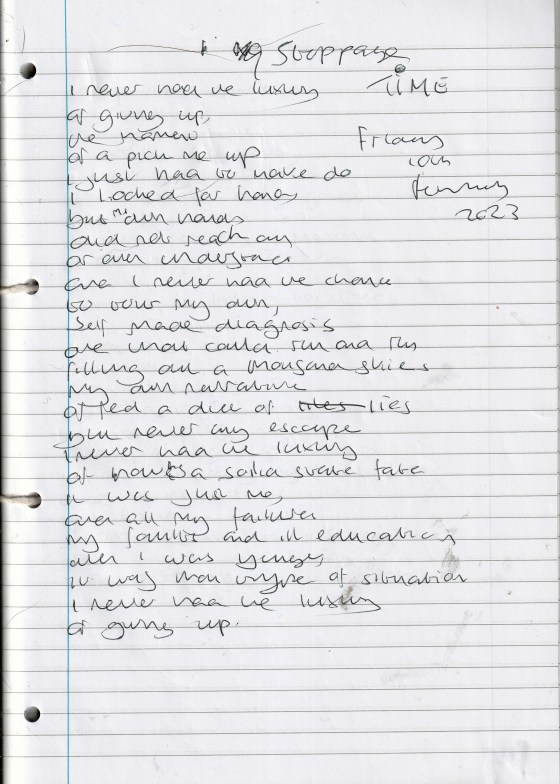 Stoppage
TIME
I never had the luxury
of giving up,
the names
Friday
of a pick me up
10th
I just had to make do
I looked for hands
February
but my own hands
2023
did not reach out
or even understand
and I never had the chance
to vour my own,
self made diagnosis
one that could run and run
filling out a thousand skies
my own narrative
of fed a diet of lies
but never any escape
I never had the luxury
of a solid state fate
it was just me,
and all my failures
my faults and ill education,
when I was younger,
it was that type of situation
I never had the luxury
of giving up.